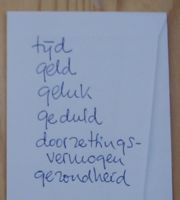 tijd
geld
geluk
geduld
doorzettings-
vermogen
gezondheid